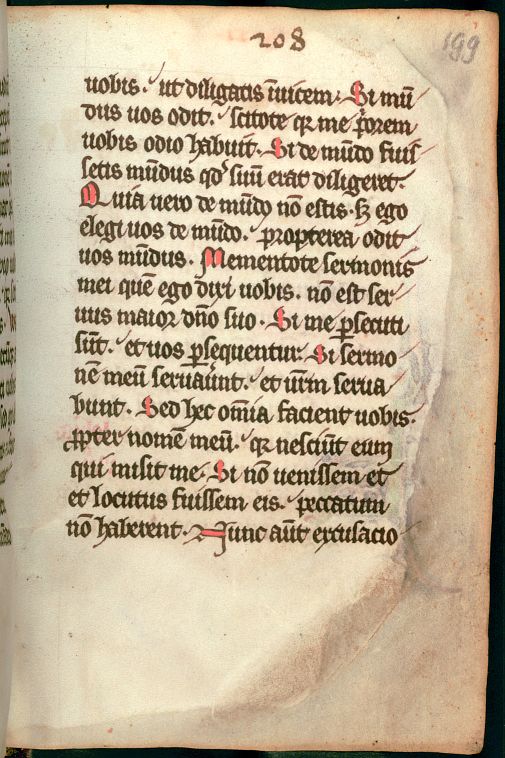 208
199
uobis. ut diligatis īuicem. Si mū
dus uos odit. scitote qꝛ me p̄orem
uobis odio habuit. Si de mūdo fuis
setis mūdus qd' suū erat diligeret.
Quia uero de mūdo nō estis. sꝫ ego
elegi uos de mūdo. propterea odit
uos mūdus. Mementote sermonis
mei quē ego dixi uobis. nō est ser
uus maior dn̄o suo. Si me ꝑsecuti
sūt. et uos ꝑsequentur. Si sermo
nē meū seruaūnt. et ur̄m serua
bunt. Sed hec om̄ia facient uobis.
ꝓpter nomē meū. qꝛ nesciūt eum
qui misit me. Si nō uenissem et
et locutus fuissem eis. peccatum
nō haberent. Nunc aūt excusacio